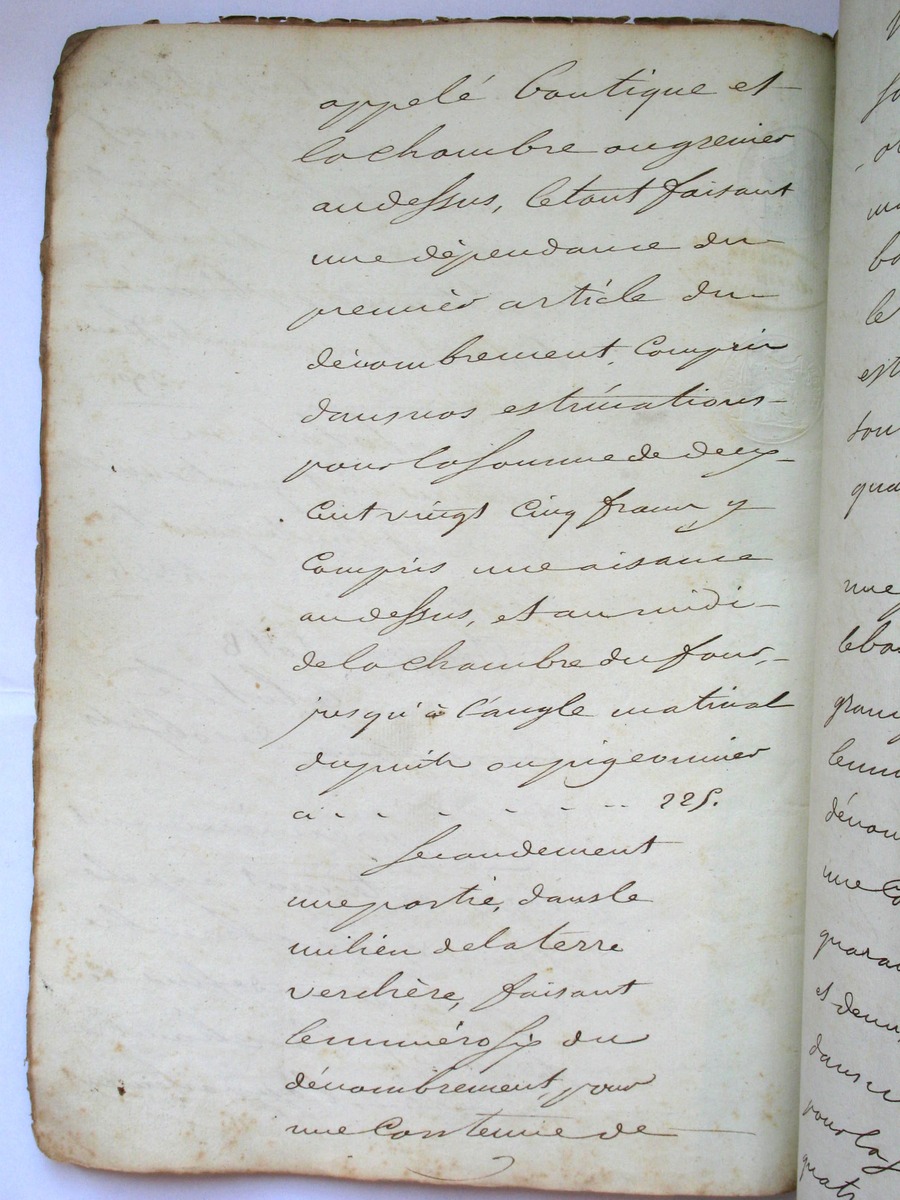 appelé boutique et
la chambre ou grenier
au dessus, le tout faisant
une dépendance du
premièr article du
dénombrement, compris
dans nos estimations
pour la somme de deux
cent vingt cinq francs y
compris une aisance
au dessus, et au midi
de la chambre du four,
jusqu'à l'angle matinal
du puits ou pigeonnier
ci - - - - - - 225.
Secondement
une partie, dans le
milieu de la terre
verchère, faisant
le numéro six du
dénombrement, pour
une contenue de
est
une
le
dans
pour la